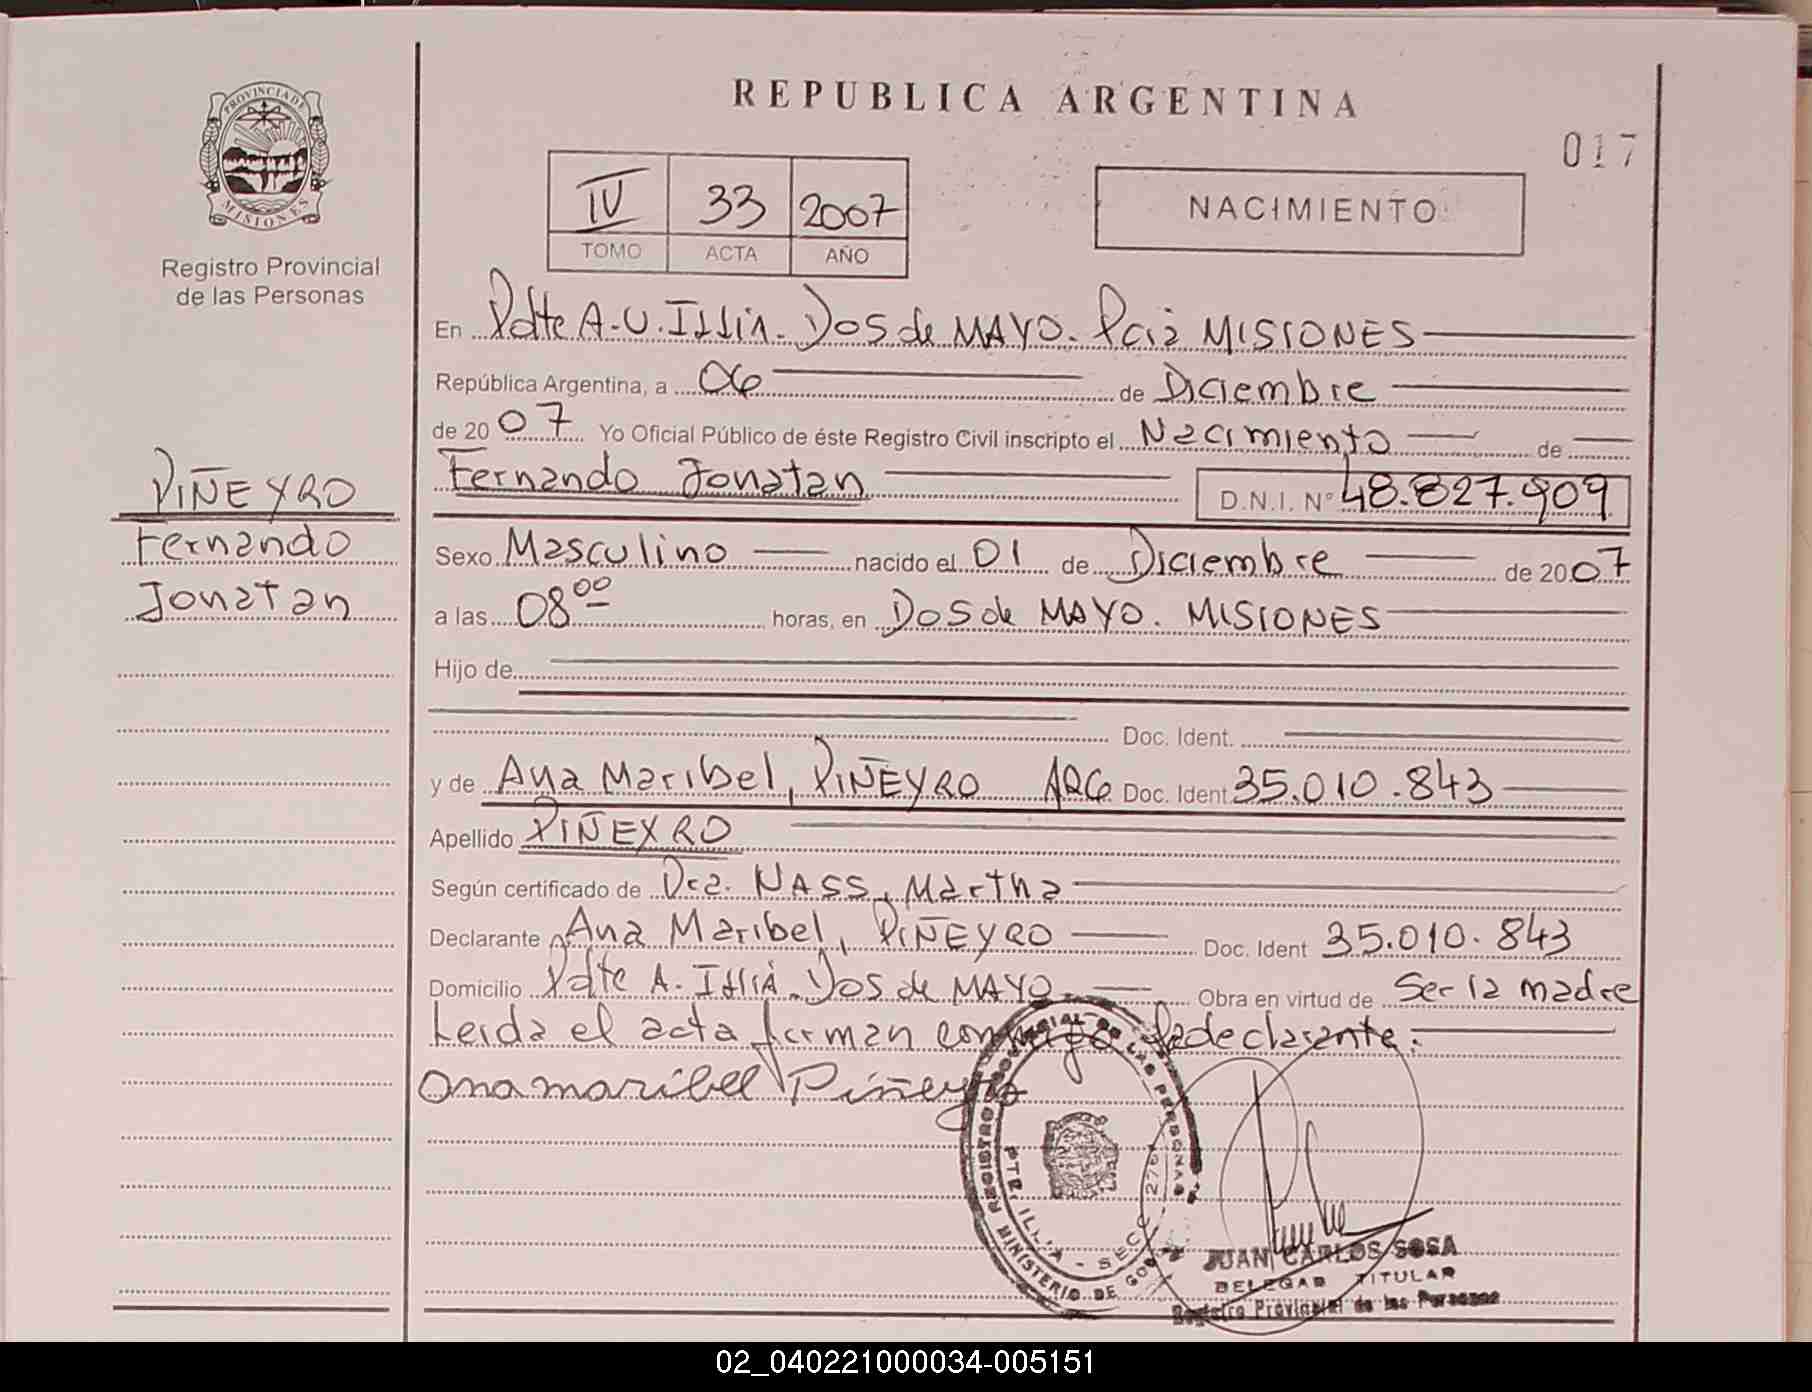 REPUBLICA ARGENTINA
017
PROVINCIA DE MISIONES
Registro Provincial
de las Personas
IV 33 2007
TOMO ACTA AÑO
NACIMIENTO
En Pdte A.U. Illia. Dos de MAYO. Pcia MISIONES
República Argentina, a 06 de Diciembre
de 2007 Yo Oficial Público de éste Registro Civil inscripto el Nacimiento de
Fernando Jonatan D.N.I. Nº 48.827.909
PIÑEYRO
Fernando
Jonatan
Sexo Masculino nacido el 01 de Diciembre de 2007
a las 08ºº horas, en Dos de MAYO. MISIONES
Hijo de
Doc. Ident.
y de Ana Maribel, PIÑEYRO ARG Doc. Ident. 35.010.843
Apellido PIÑEYRO
Según certificado de Dra. NASS, Martha
Declarante Ana Maribel, PIÑEYRO Doc. Ident 35.010.843
Domicilio Pdte A. Illia. Dos de MAYO. Obra en virtud de Ser la madre
Leida el acta firman conmigo la declarante.
Ana maribel Piñeyro
REGISTRO PROVINCIAL DE LAS PERSONAS
MINISTERIO DE GOB
PTE. ILLIA - SECC 2764
JUAN CARLOS SOSA
DELEGAD TITULAR
Registro Provincial de las Personas
02_040221000034-005151